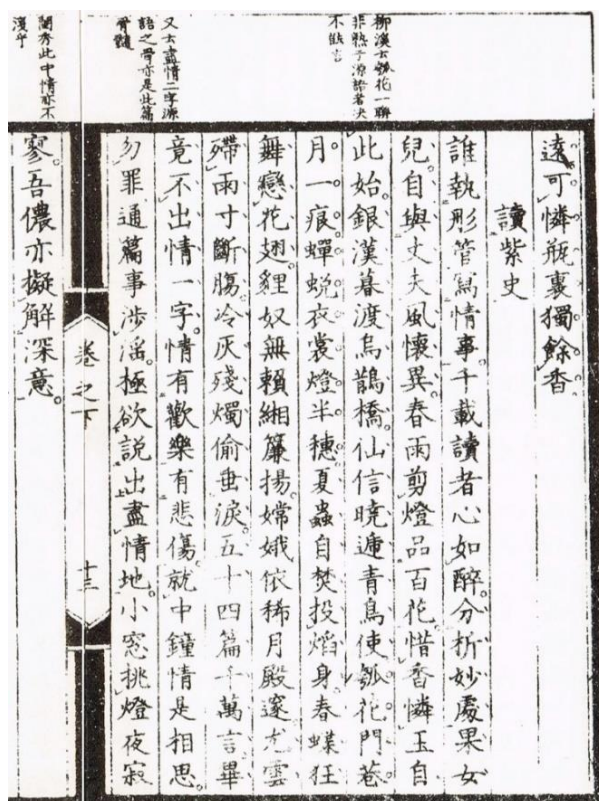 柳溪云瓠花一聯
非熟于源語者决
不能言
又云盡情二字源
語之骨亦是此篇
骨髓
閨秀此中情亦不
淺乎
遠。可憐瓶裏獨餘香。
讀紫史
誰執彤管寫情事。千載讀者心如醉。分析妙處果女
兒。自與丈夫風懷異。春雨剪燈品百花。惜香憐玉自
此始。銀漢暮渡烏鵲橋。仙信曉遞青鳥使。瓠花門巷
月一痕。蟬蛻衣裳燈半穗。夏蟲自焚投熖身。春蝶狂
舞戀花翅。貍奴無賴緗簾揚。嫦娥依稀月殿邃。尤雲
殢雨寸斷膓。冷灰殘燭偷垂淚。五十四篇千萬言。畢
竟不出情一字。情有歡樂有悲傷。就中鐘情是相思。
勿罪通篇事涉淫。極欲說出盡情地。小窓挑燈夜寂
卷之下
十三
寥。吾儂亦擬解深意。